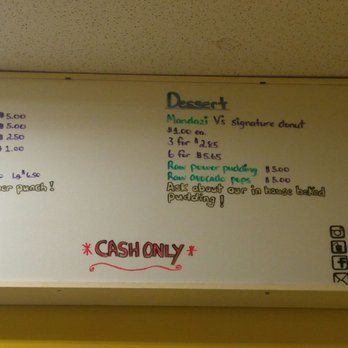 $5.00
$5.00
$2.50
$1.00
Lg $6.50
punch!
Dessert
Mandazi V's signature donut
$1.00 ea.
3 for $2.85
6 for $5.65
Raw power pudding $5.00
Raw avocado pops $5.00
Ask about our in house baked
pudding!
*CASH ONLY*